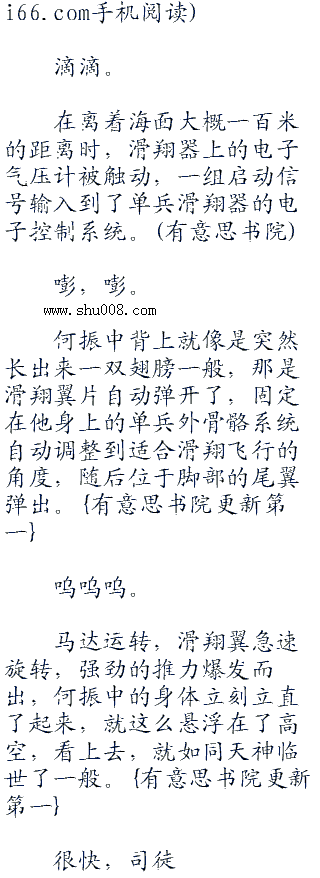 i66.com手机阅读)
滴滴。
在离着海面大概一百米
的距离时，滑翔器上的电子
气压计被触动，一组启动信
号输入到了单兵滑翔器的电
子控制系统。(有意思书院)
嘭，嘭。
www.shu008.com
何振中背上就像是突然
长出来一双翅膀一般，那是
滑翔翼片自动弹开了，固定
在他身上的单兵外骨骼系统
自动调整到适合滑翔飞行的
角度，随后位于脚部的尾翼
弹出。{有意思书院更新第
一}
呜呜呜。
马达运转，滑翔翼急速
旋转，强劲的推力爆发而
出，何振中的身体立刻立直
了起来，就这么悬浮在了高
空，看上去，就如同天神临
世了一般。{有意思书院更新
第一}
很快，司徒